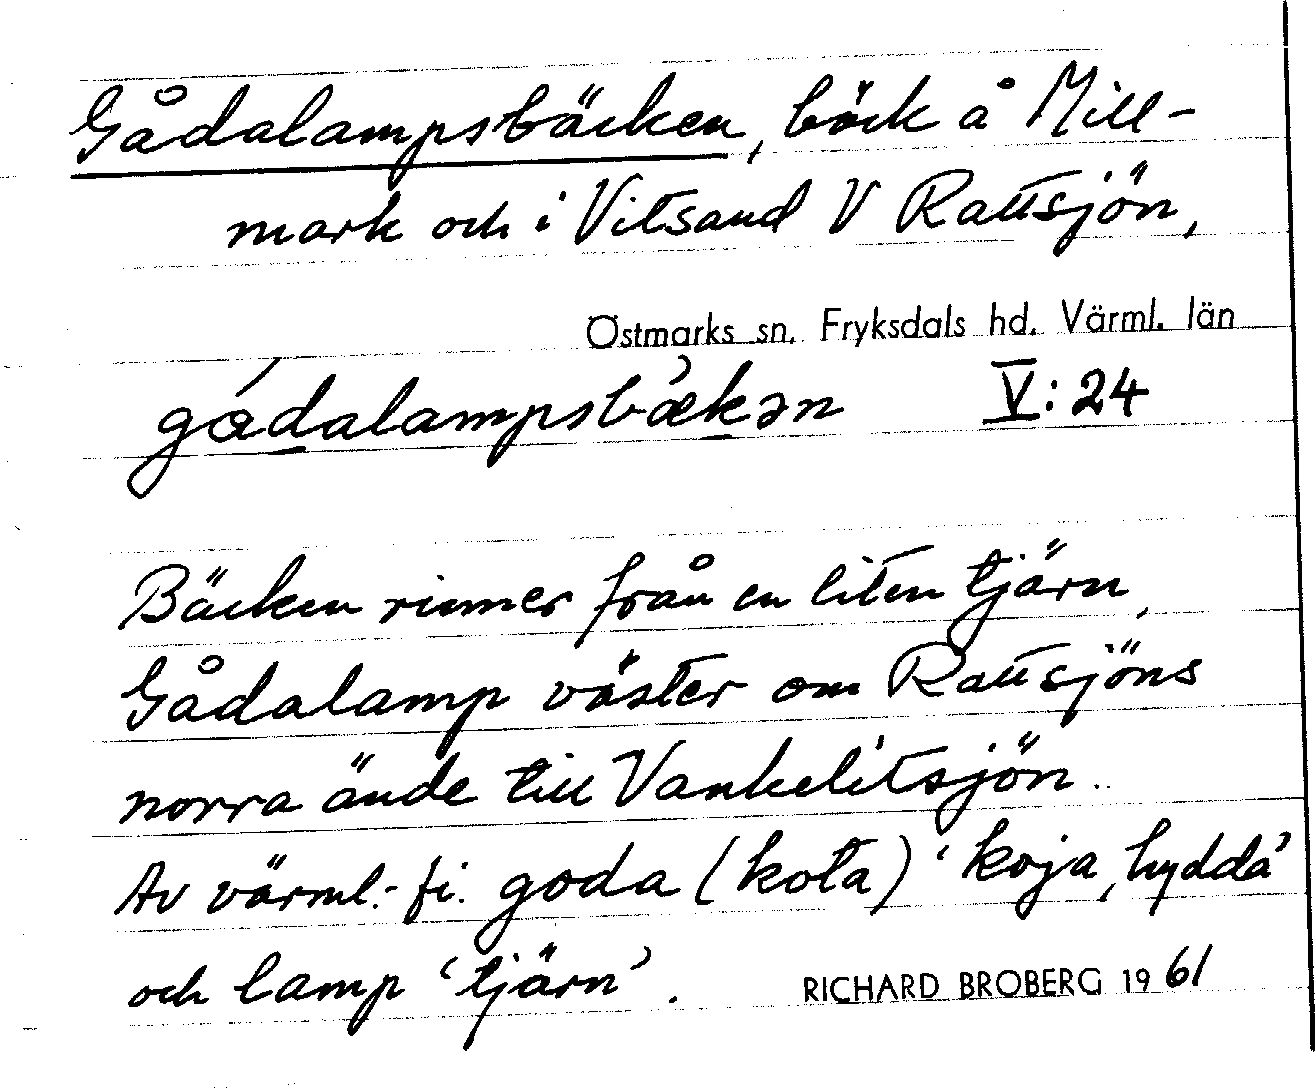 Gådalampsbäcken, bäck å Mill-
mark och i Vitsand V Rattsjön,
Östmarks sn. Fryksdals hd. Värml. län
gådalampsbækən V:24
Bäcken rinner från en liten tjärn,
Gådalamp väster om Rattsjöns
norra ände till Vankelitsjön.
Av värml.-fi. goda (kota) 'koja, hydda'
och lamp 'tjärn'. RICHARD BROBERG 1961